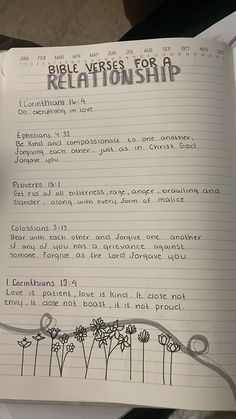 JAN FEB MAR APR MAY JUN JUL AUG SEP OCT NOV DEC
BIBLE VERSES FOR A
RELATIONSHIP
1 Corinthians 16:4
Do everything in love.
Ephesians 4:32
Be kind and compassionate to one another,
forgiving each other, just as in Christ God
forgave you.
Proverbs 15:1
Get rid of all bitterness, rage, anger, brawling and
Slander, along with every form of malice
Colossians 3:13
Bear with each other and forgive one another
if any of you has a grievance against
someone. Forgive as the lord forgave you.
1 Corinthians 13:4
Love is patient, love is kind. It does not
envy, it does not boast, it is not proud.